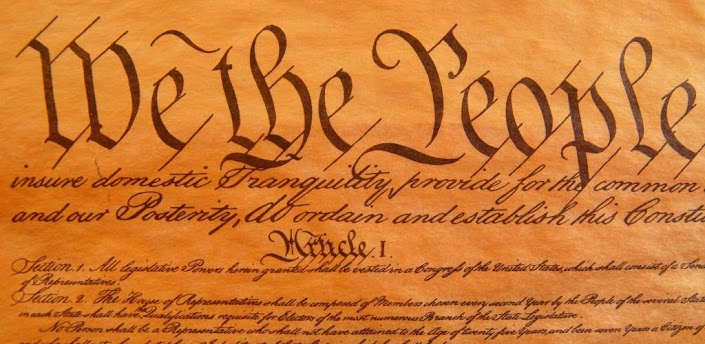 We the People
insure domestic Tranquility, provide for the common
and our Posterity, do ordain and establish this Constitu
Article. I.
Section. 1. All legislative Powers herein granted shall be vested in a Congress of the United States, which shall consist of a Sena
of Representatives.
Section. 2. The House of Representatives shall be composed of Members chosen every second Year by the People of the several Stat
in each State shall have the Qualifications requisite for Electors of the most numerous Branch of the State Legislature.
No Person shall be a Representative who shall not have attained to the Age of twenty five Years, and been seven Years a Citizen of